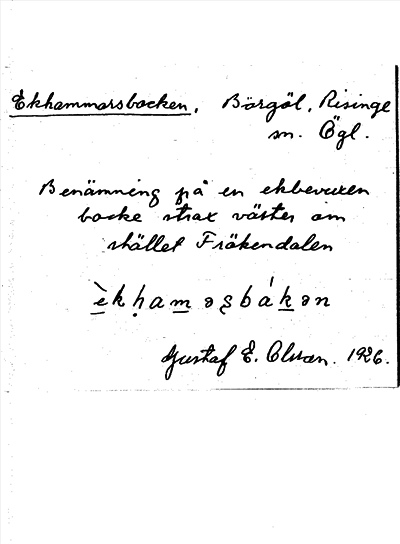 Ekhammarsbacken. Börgöl, Risinge
sn. Ögl.
Benämning på en ekbevuxen
backe strax väster om
stället Fräkendalen
è̱kḥam̱əʂbáḵən
Gustaf E. Olsson. 1926.